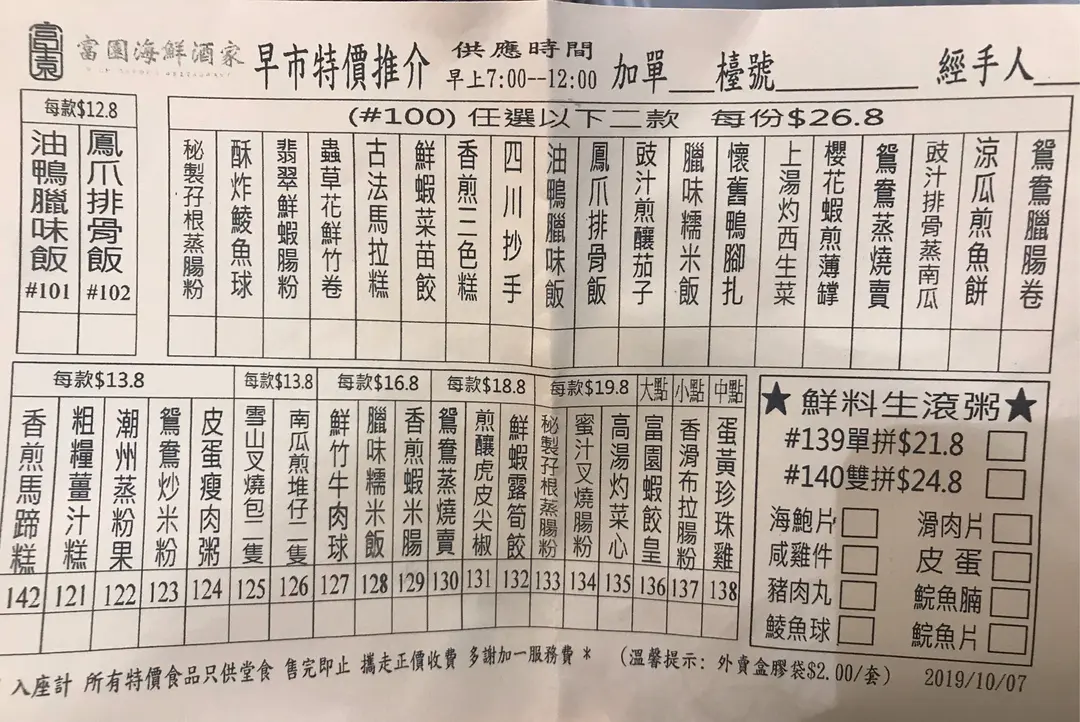 富園
富園海鮮酒家
早市特價推介
供應時間
早上7:00--12:00
加單___檯號________
經手人
每款$12.8
油鴨臘味飯
#101
鳳爪排骨飯
#102
(#100) 任選以下二款 每份$26.8
秘製孖根蒸腸粉
酥炸鯪魚球
翡翠鮮蝦腸粉
蟲草花鮮竹卷
古法馬拉糕
鮮蝦菜苗餃
香煎二色糕
四川抄手
油鴨臘味飯
鳳爪排骨飯
豉汁煎釀茄子
臘味糯米飯
懷舊鴨腳扎
上湯灼西生菜
櫻花蝦煎薄罉
鴛鴦蒸燒賣
豉汁排骨蒸南瓜
涼瓜煎魚餅
鴛鴦臘腸卷
每款$13.8
香煎馬蹄糕
142
粗糧薑汁糕
121
潮州蒸粉果
122
鴛鴦炒米粉
123
皮蛋瘦肉粥
124
每款$13.8
雪山叉燒包二隻
125
南瓜煎堆仔二隻
126
每款$16.8
鮮竹牛肉球
127
臘味糯米飯
128
香煎蝦米腸
129
每款$18.8
鴛鴦蒸燒賣
130
煎釀虎皮尖椒
131
鮮蝦露筍餃
132
每款$19.8
秘製孖根蒸腸粉
133
蜜汁叉燒腸粉
134
高湯灼菜心
135
大點
富園蝦餃皇
136
小點
香滑布拉腸粉
137
中點
蛋黃珍珠雞
138
★鮮料生滾粥★
#139單拼$21.8
#140雙拼$24.8
海鮑片
滑肉片
咸雞件
皮蛋
豬肉丸
鯇魚腩
鯪魚球
鯇魚片
入座計 所有特價食品只供堂食 售完即止 攜走正價收費 多謝加一服務費 * (溫馨提示: 外賣盒膠袋$2.00/套) 2019/10/07